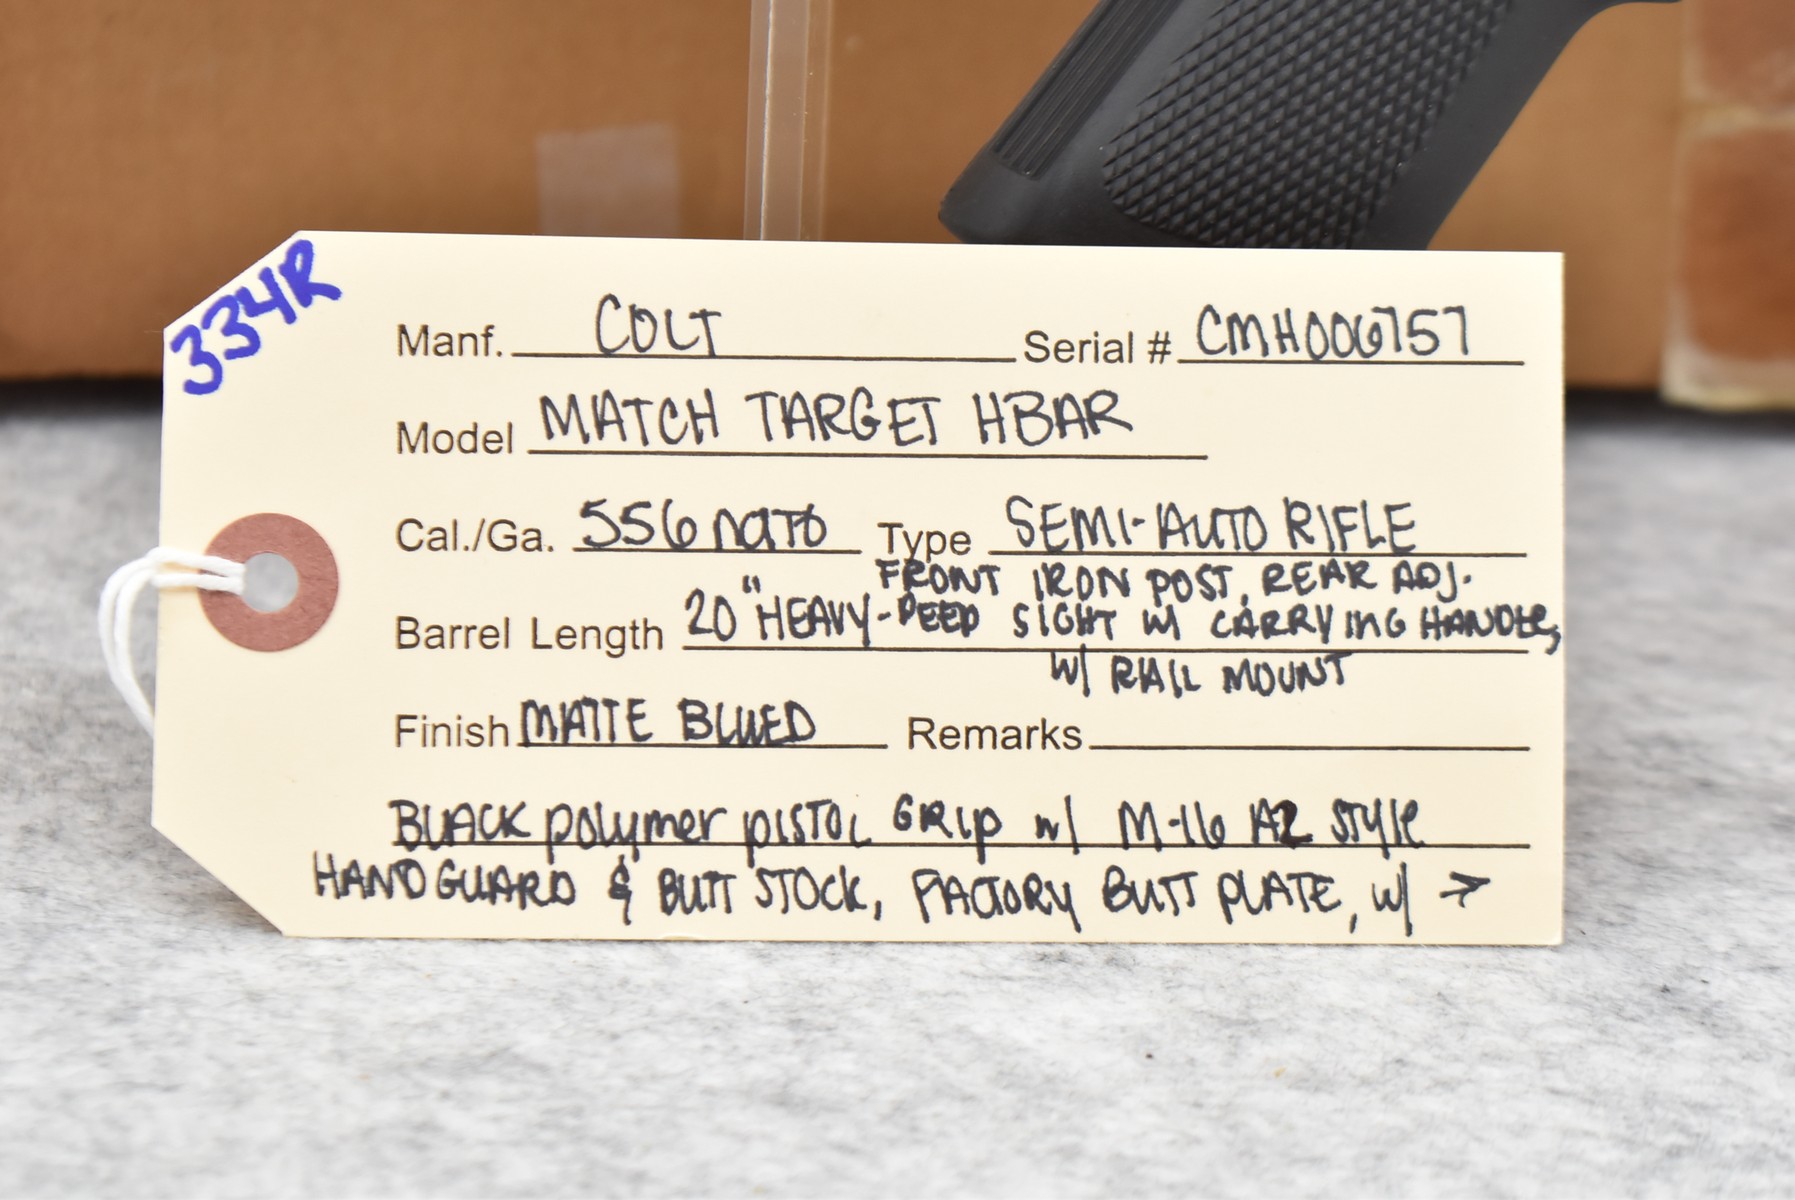 334R
Manf. COLT Serial # CMH006757
Model MATCH TARGET HBAR
Cal./Ga. 556 NATO Type SEMI-AUTO RIFLE
FRONT IRON POST, REAR ADJ.
Barrel Length 20" HEAVY-PEEP SIGHT W/ CARRYING HANDLE,
W/ RAIL MOUNT
Finish MATTE BLUED Remarks
BLACK polymer pISTOL GRIp w/ M-16 A2 STYlE
HAND GUARD & BUTT STOCK, FACTORY BUTT PLATE, w/ →